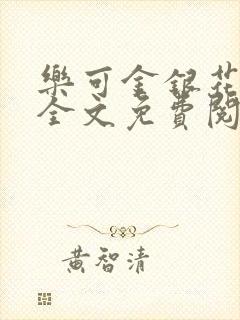 樂可金銀花
全文免費閱
黃智清